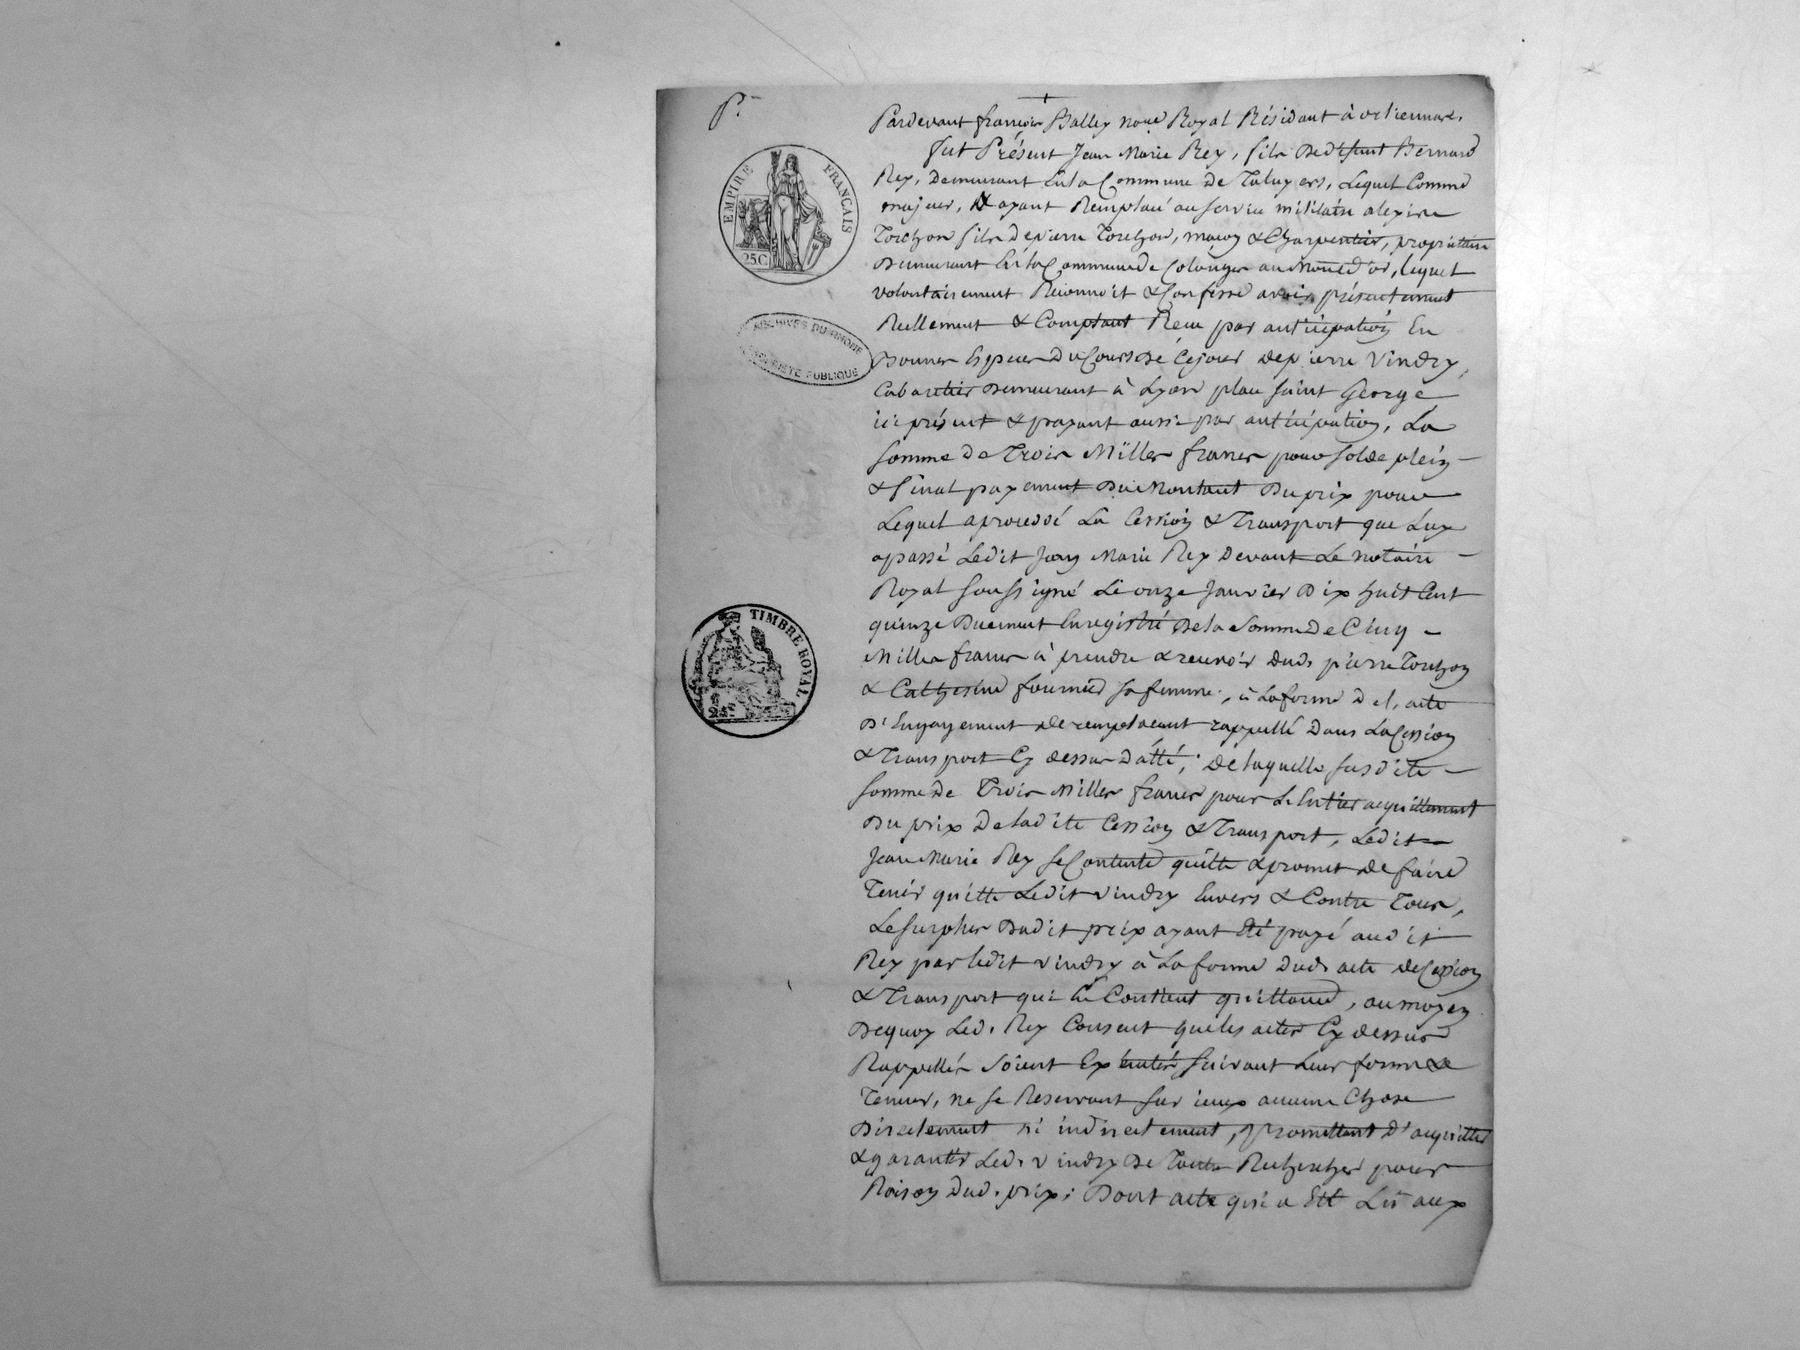 P.
EMPIRE FRANÇAIS
25C.
ARCHIVES DU RHONE
PROPRIETE PUBLIQUE
TIMBRE ROYAL
25c
Pardevant françois Balley Noṛe Royal Résidant à
fut Présent Jean Marie Rey, fils de défunt Bernard
Rey, Demeurant En la Commune de Taluyers, Lequel Comme
majeur, & ayant Remplacé au service militaire alexine
Torchon fils de pierre Torchon, maçon & Charpentier, propriétaire
Demeurant En la Commune de Colonges au Mont d'or, lequel
volontairement Reconnoit & Confesse avoir présentement
Reellement & Comptant Reçu par anticipation En
bonnes Espeçes Du Cours De Cejour de pierre Vindry,
Cabaretier Demeurant à Lyon place Saint George
ici présent & payant aussi par anticipation, La
Somme de Trois Milles francs pour solde plein
& final payement Du Montant Du prix pour
Lequel a procedé La Cession & Transport que Luy
a passé Ledit Jean Marie Rey Devant Le notaire
Royal Soussigné Le onze Janvier Dix huit Cent
quinze Duement Enregistré De la Somme De Cinq
Milles francs à prendre & recevoir dud. pierre Torchon
& Catherine fournier sa femme, à La forme de l'acte
D'Engagement de remplacant rappellé Dans La Cession
& Transport Cy dessus Datté; de laquelle susdite
somme De Trois Milles francs pour L'Entier acquittement
Du prix De ladite Cession & Transport, Ledit
Jean Marie Rey se Contente quitte & promet de faire
Tenir quitte Ledit vindry Envers & Contre Tous,
Le surplus Dudit prix ayant été payé audit
Rey par ledit vindry à La forme Dud. acte de Cession
& Transport qui En Contient quittance, au moyen
Dequoy Led. Rey Consent que les actes Cy dessus
Rappellés Soient Exécutés suivant Leur forme &
Teneur, ne se Reservant sur iceux aucune Chose
Directement ni indirectement, promettant D'acquitter
& garantir Led. vindry De Toutes Recherches pour
Raison Dud. prix; Dont acte qui a Eté Lû aux